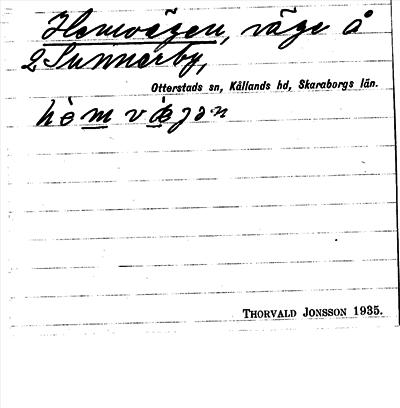 Hemvägen, väge å
2 Sunnerby,
Otterstads sn, Kållands hd, Skaraborgs län.
THORVALD JONSSON 1935.